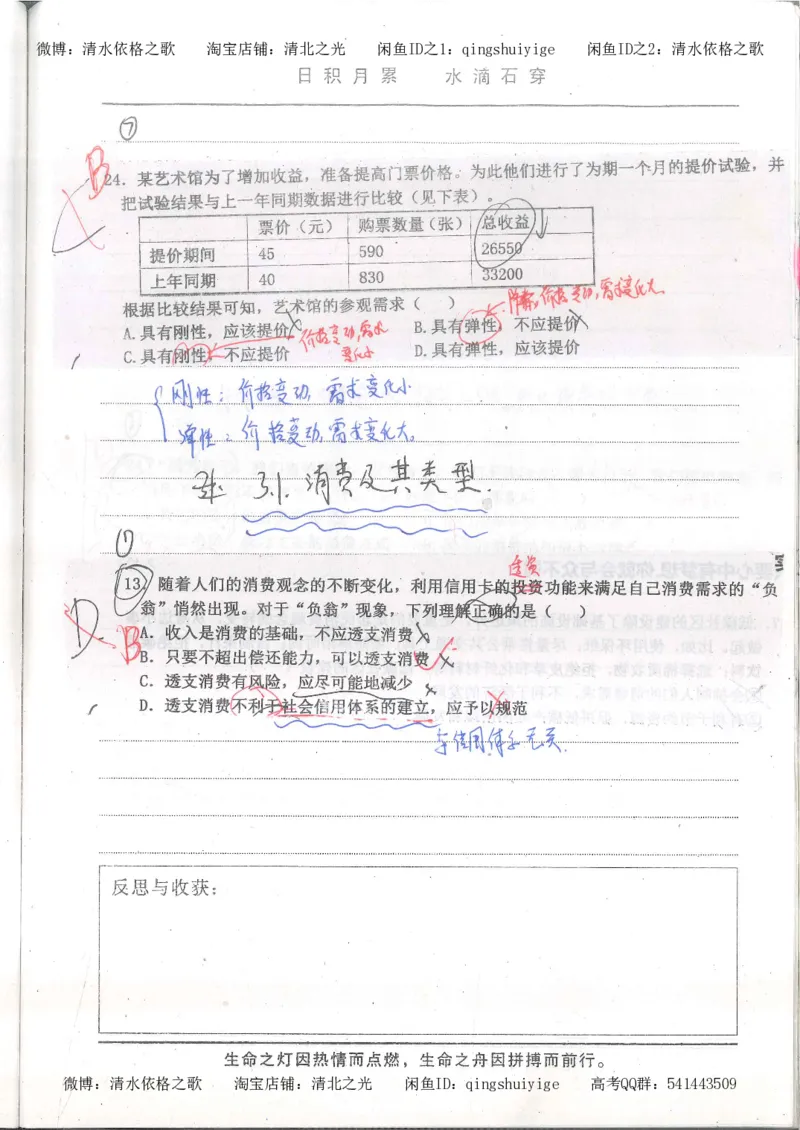 微博：清水依格之歌 淘宝店铺：清北之光 闲鱼ID之1：qingshuiyige 闲鱼ID之2：清水依格之歌
日积月累 水滴石穿
⑦
B
24．某艺术馆为了增加收益，准备提高门票价格。为此他们进行了为期一个月的提价试验，并
把试验结果与上一年同期数据进行比较（见下表）。
票价（元） 购票数量（张） 总收益
提价期间 45 590 26550
上年同期 40 830 33200
根据比较结果可知，艺术馆的参观需求（ ）
价格变动,需求变化大
A.具有刚性，应该提价 B.具有弹性，不应提价
价格变动,需求
变化小
C.具有刚性，不应提价 D.具有弹性，应该提价
刚性：价格变动,需求变化小
弹性：价格变动,需求变化大。
3.1.消费及其类型.
①
透资
13 随着人们的消费观念的不断变化，利用信用卡的投资功能来满足自己消费需求的“负
翁”悄然出现。对于“负翁”现象，下列理解正确的是（ ）
D
B
A．收入是消费的基础，不应透支消费
B．只要不超出偿还能力，可以透支消费
C．透支消费有风险，应尽可能地减少
D．透支消费不利于社会信用体系的建立，应予以规范
与信用体系无关.
反思与收获：
生命之灯因热情而点燃，生命之舟因拼搏而前行。
微博：清水依格之歌 淘宝店铺：清北之光 闲鱼ID：qingshuiyige 高考QQ群：541443509